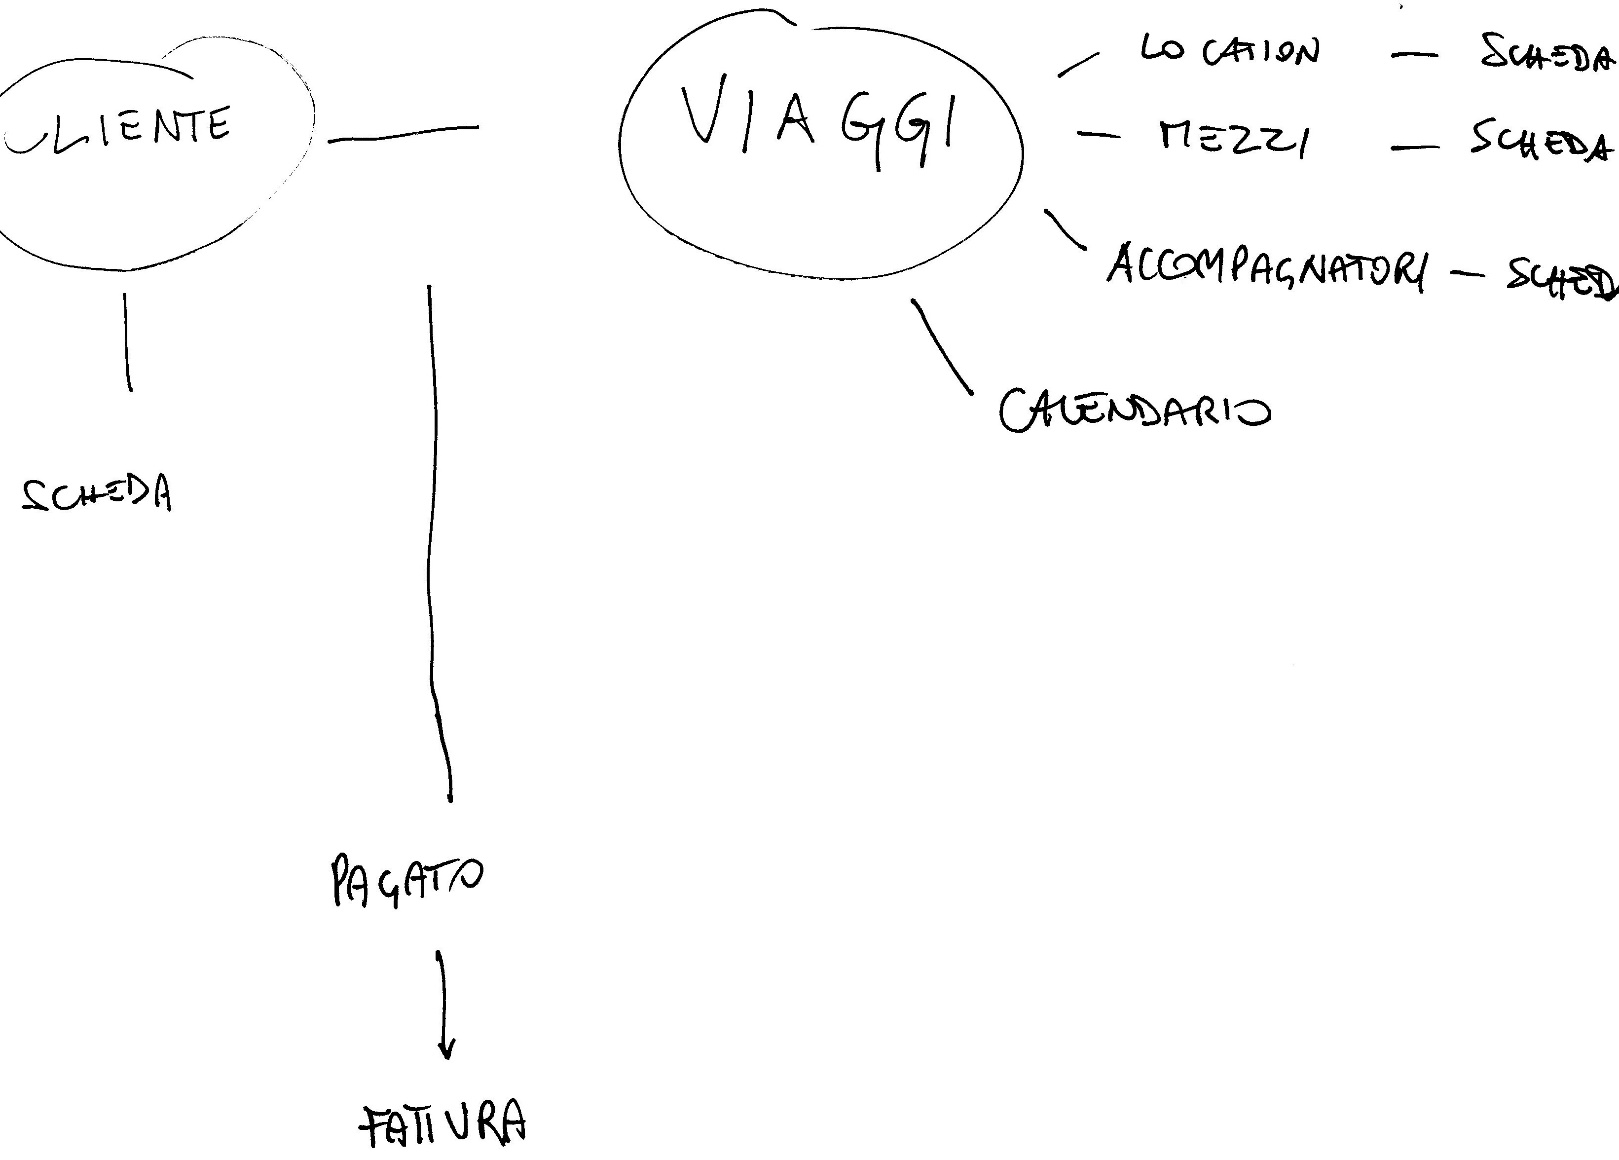 CLIENTE
VIAGGI
LOCATION — SCHEDA
MEZZI — SCHEDA
ACCOMPAGNATORI — SCHED
CALENDARIO
SCHEDA
PAGATO
FATTURA